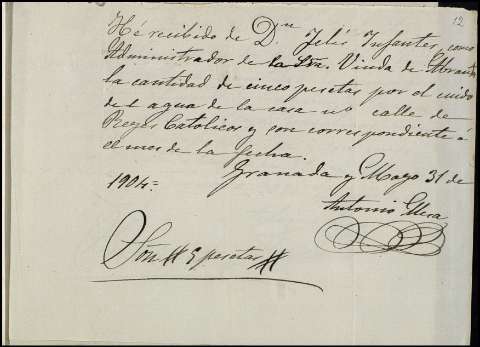 12
Hé recibido de D.n Felis Infantes, como
Administrador de la Sra. Viuda de Abrantes
la cantidad de cinco pesetas por el cuido
del agua de la casa nº calle de
Reyes Catolicos y son correspondiente á
el mes de la fecha.
Granada y Mayo 31 de
1904=
Antonio
Son # 5 pesetas #